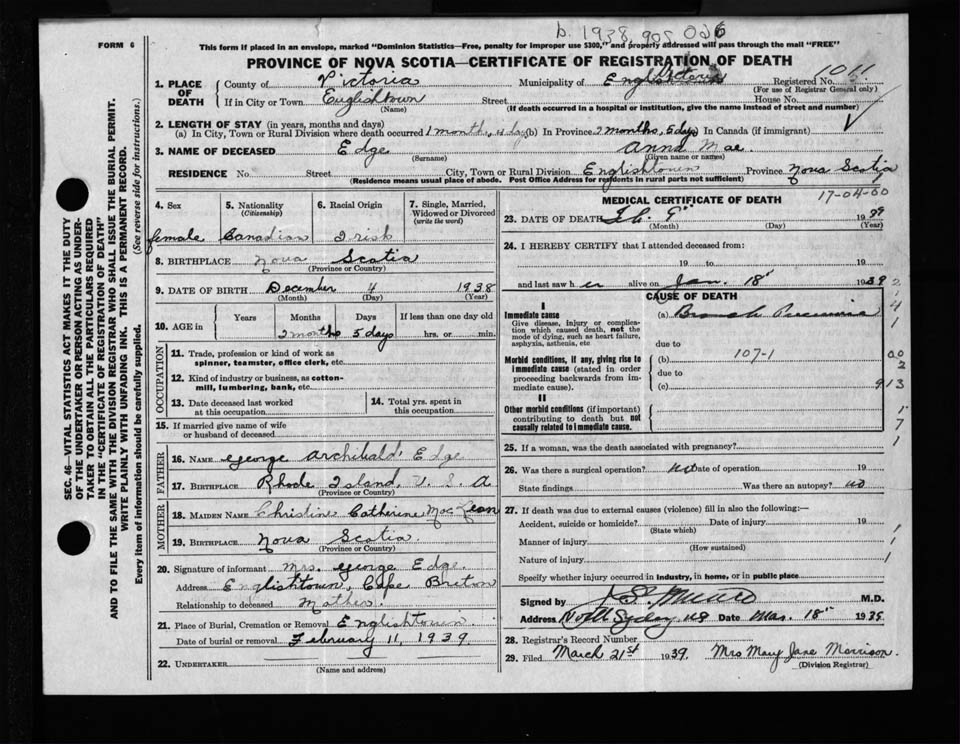 b. 1938, 905 026
FORM 6
This form if placed in an envelope, marked "Dominion Statistics—Free, penalty for improper use $300," and properly addressed will pass through the mail "FREE"
PROVINCE OF NOVA SCOTIA—CERTIFICATE OF REGISTRATION OF DEATH
1. PLACE OF DEATH
County of Victoria Municipality of Englishtown Registered No.
(For use of Registrar General only)
If in City or Town Englishtown Street House No.
(Name) (If death occurred in a hospital or institution, give the name instead of street and number)
2. LENGTH OF STAY (in years, months and days)
(a) In City, Town or Rural Division where death occurred 1 month, days (b) In Province 2 months, 5 days In Canada (if immigrant)
3. NAME OF DECEASED Edge Anna Mae
(Surname) (Given name or names)
RESIDENCE No. Street City, Town or Rural Division Englishtown Province Nova Scotia
(Residence means usual place of abode. Post Office Address for residents in rural parts not sufficient)
17-04-60
4. Sex
female
5. Nationality
(Citizenship)
Canadian
6. Racial Origin
Irish
7. Single, Married, Widowed or Divorced
(write the word)
8. BIRTHPLACE Nova Scotia
(Province or Country)
9. DATE OF BIRTH December 4 1938
(Month) (Day) (Year)
10. AGE in
Years Months Days If less than one day old
2 months 5 days hrs. or min.
OCCUPATION
11. Trade, profession or kind of work as
spinner, teamster, office clerk, etc.
12. Kind of industry or business, as cotton-
mill, lumbering, bank, etc.
13. Date deceased last worked
at this occupation
14. Total yrs. spent in
this occupation
15. If married give name of wife
or husband of deceased
FATHER
16. NAME George Archibald Edge
17. BIRTHPLACE Rhode Island, U. S. A
(Province or Country)
MOTHER
18. MAIDEN NAME Christine Catherine MacLean
19. BIRTHPLACE Nova Scotia.
(Province or Country)
20. Signature of informant Mrs. George Edge
Address Englishtown, Cape Breton
Relationship to deceased Mother.
21. Place of Burial, Cremation or Removal Englishtown
Date of burial or removal February 11, 1939
22. UNDERTAKER
(Name and address)
MEDICAL CERTIFICATE OF DEATH
23. DATE OF DEATH 9" 1939
(Month) (Day) (Year)
24. I HEREBY CERTIFY that I attended deceased from:
19 to 19
and last saw her alive on Jan. 18" 1939
CAUSE OF DEATH
I
Immediate cause
Give disease, injury or complica-
tion which caused death, not the
mode of dying, such as heart failure,
asphyxia, asthenia, etc
(a)
due to
Morbid conditions, if any, giving rise to
immediate cause (stated in order
proceeding backwards from im-
mediate cause).
(b) 107-1
due to
(c)
II
Other morbid conditions (if important)
contributing to death but not
causally related to immediate cause.
25. If a woman, was the death associated with pregnancy?
26. Was there a surgical operation? no Date of operation 19
State findings Was there an autopsy? no
27. If death was due to external causes (violence) fill in also the following:—
Accident, suicide or homicide? Date of injury 19
(State which)
Manner of injury
(How sustained)
Nature of injury
Specify whether injury occurred in industry, in home, or in public place
Signed by M.D.
Address North Sydney NS Date Mar. 18" 1939
28. Registrar's Record Number
29. Filed March 21st 1939 Mrs Mary Jane Morrison.
(Division Registrar)
SEC. 46—VITAL STATISTICS ACT MAKES IT THE DUTY
OF THE UNDERTAKER OR PERSON ACTING AS UNDER-
TAKER TO OBTAIN ALL THE PARTICULARS REQUIRED
IN THE "CERTIFICATE OF REGISTRATION OF DEATH"
AND TO FILE THE SAME WITH THE DIVISION REGISTRAR WHO SHALL ISSUE THE BURIAL PERMIT.
WRITE PLAINLY WITH UNFADING INK. THIS IS A PERMANENT RECORD.
Every item of information should be carefully supplied. (See reverse side for instructions.)